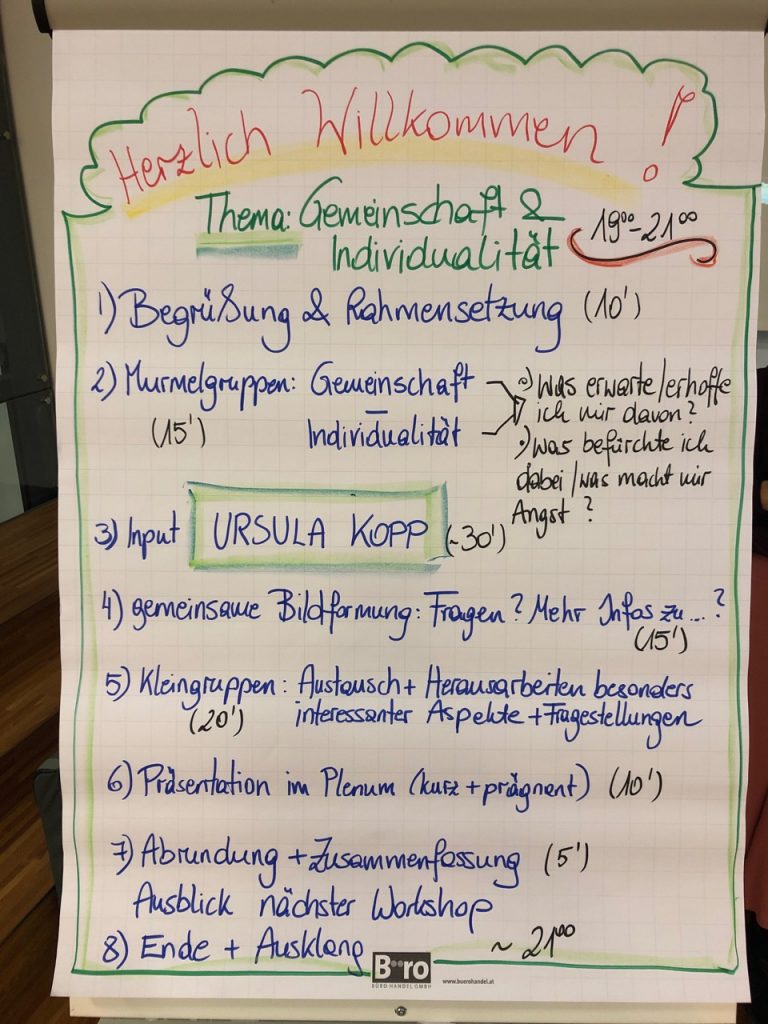 Herzlich Willkommen!
Thema: Gemeinschaft &
Individualität
19⁰⁰-21⁰⁰
1) Begrüßung & Rahmensetzung (10')
2) Murmelgruppen: Gemeinschaft
(15')
–
Individualität
•) Was erwarte/erhoffe
ich mir davon?
•) Was befürchte ich
dabei/was macht mir
Angst?
3) Input URSULA KOPP (~30')
4) gemeinsame Bildformung: Fragen? Mehr Infos zu...?
(15')
5) Kleingruppen: Austausch + Herausarbeiten besonders
(20') interessanter Aspekte + Fragestellungen
6) Präsentation im Plenum (kurz + prägnant) (10')
7) Abrundung + Zusammenfassung (5')
Ausblick nächster Workshop
8) Ende + Ausklang ~ 21⁰⁰
Büro
BÜRO HANDEL GMBH
www.buerohandel.at